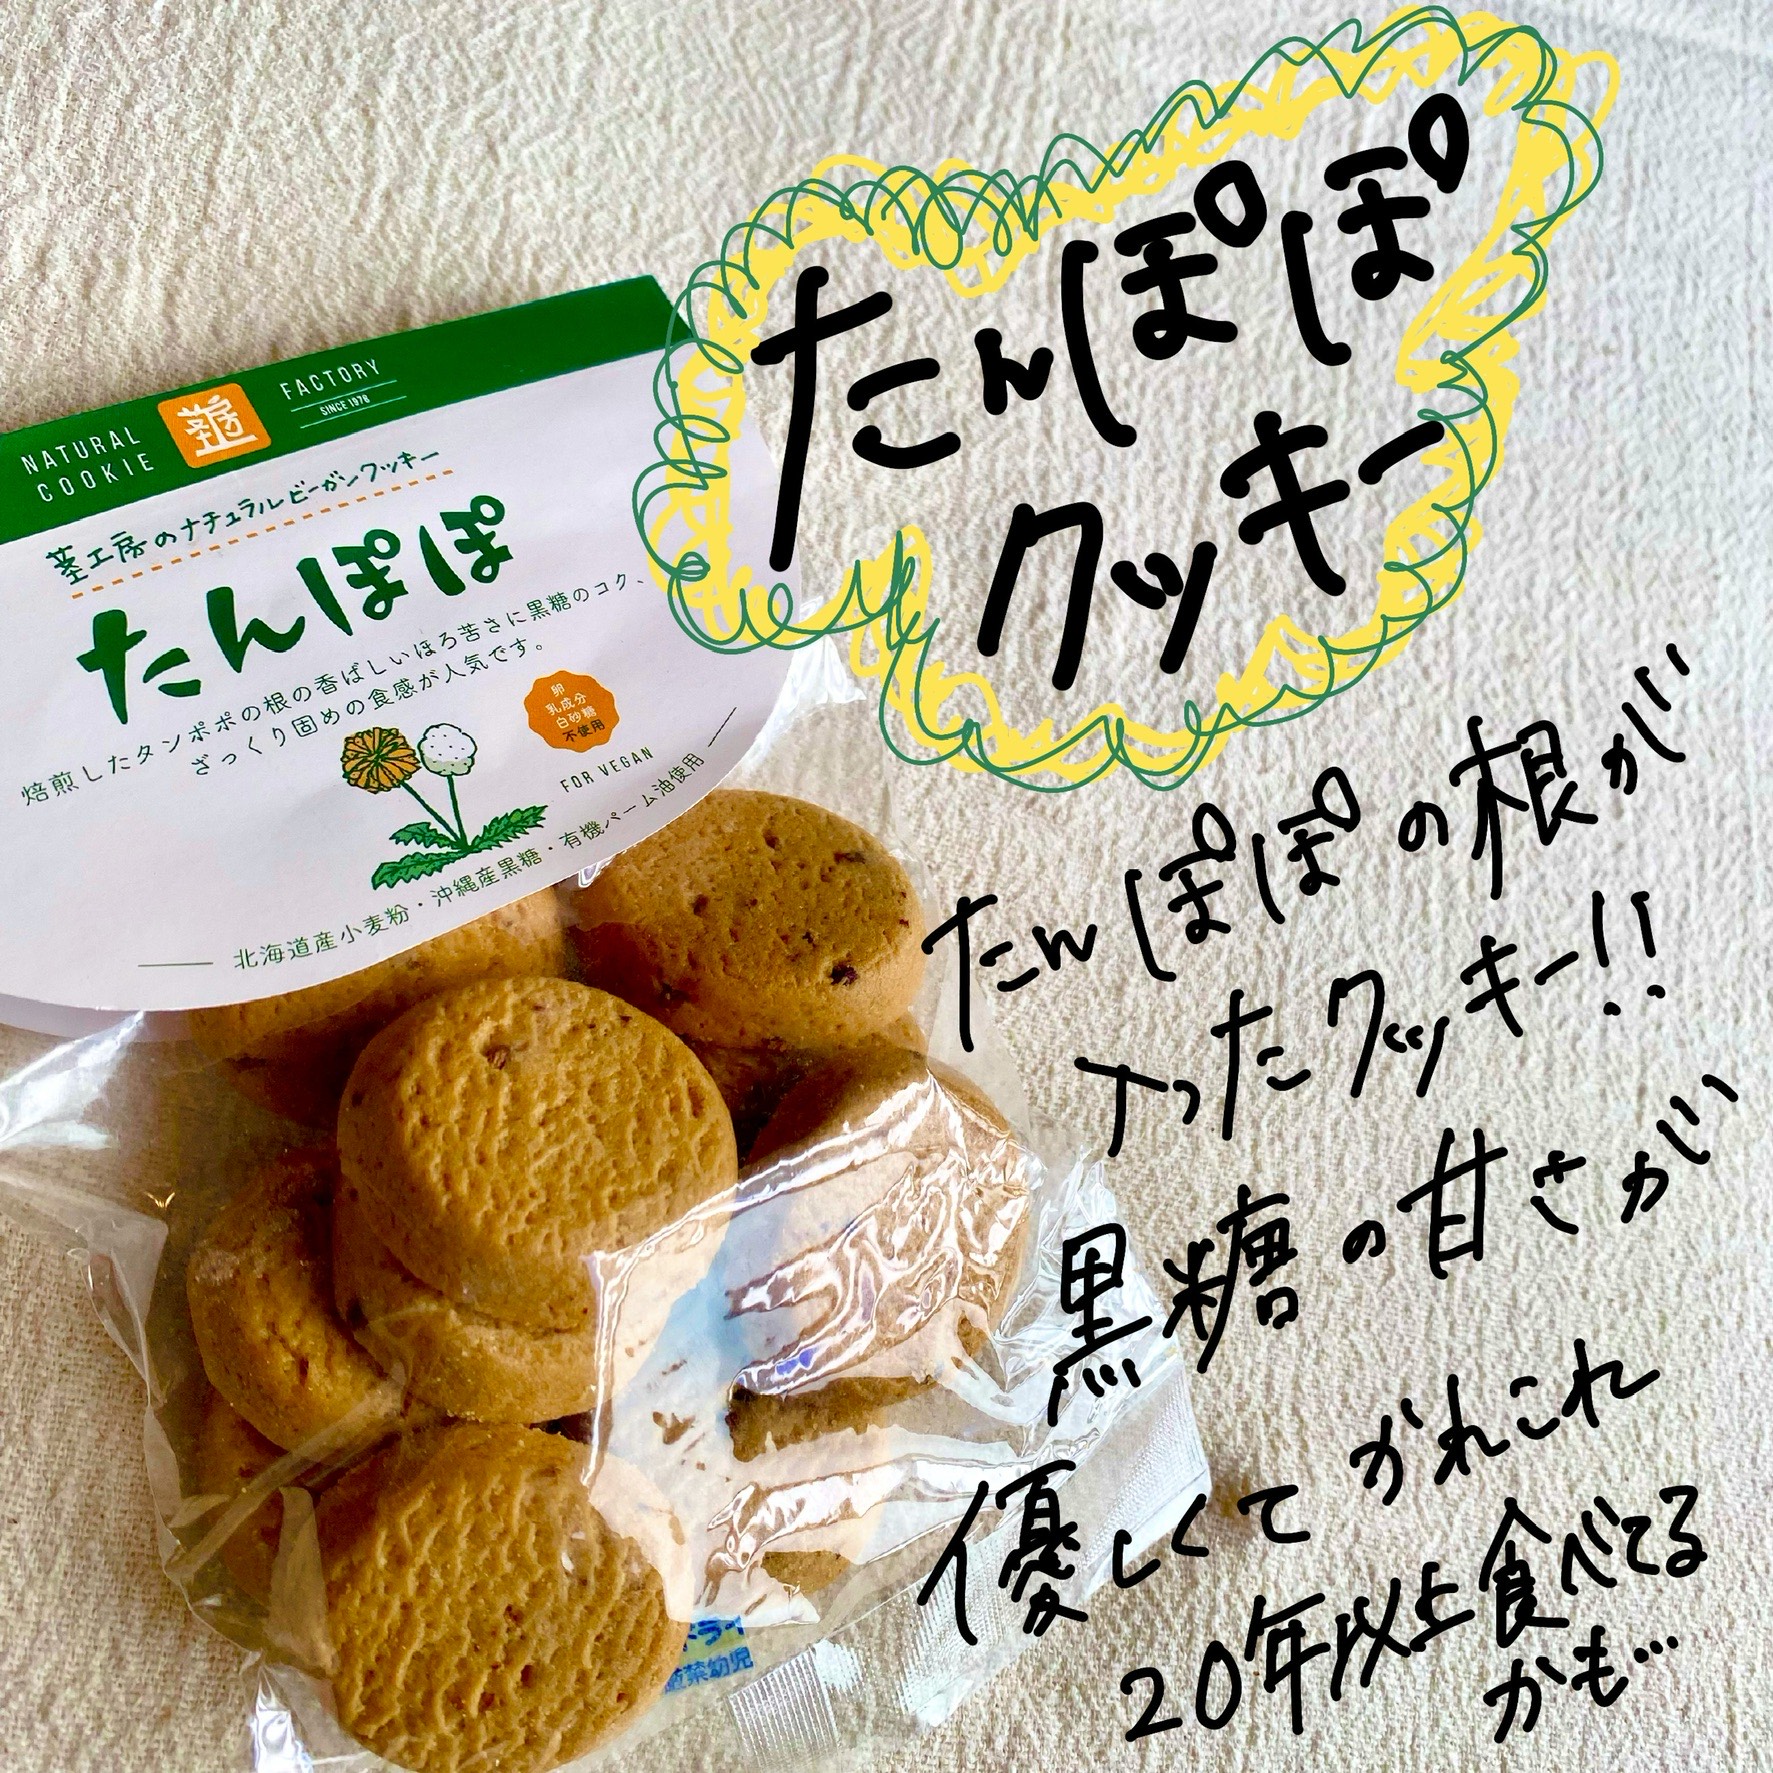 たんぽぽ
クッキー
NATURAL
COOKIE
茎工房
FACTORY
SINCE 1978
茎工房のナチュラルビーガンクッキー
たんぽぽ
焙煎したタンポポの根の香ばしいほろ苦さに黒糖のコク、
ざっくり固めの食感が人気です。
卵
乳成分
白砂糖
不使用
FOR VEGAN
北海道産小麦粉・沖縄産黒糖・有機パーム油使用
たんぽぽの根が
入ったクッキー!!
黒糖の甘さが
優しくて かれこれ
20年以上食べてる
かも…
ドライ
幼児